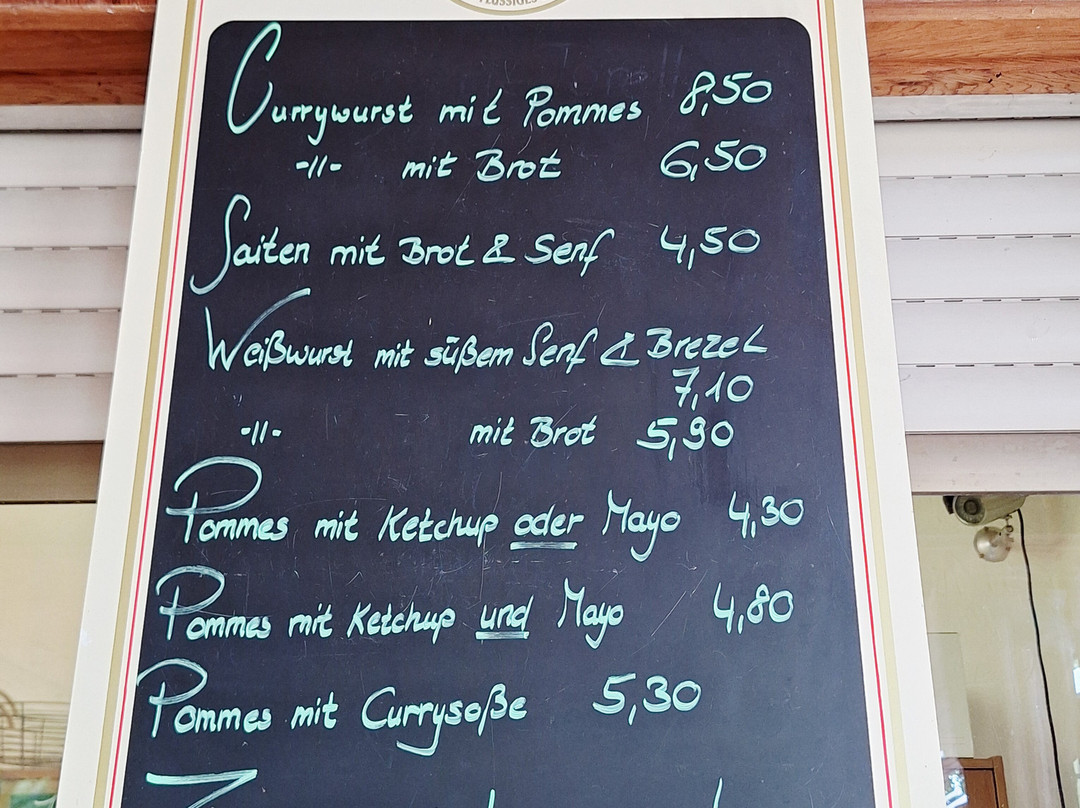 FLÜSSIGES
Currywurst mit Pommes 8,50
-11- mit Brot 6,50
Saiten mit Brot & Senf 4,50
Weißwurst mit süßem Senf & Brezel
7,10
-11- mit Brot 5,90
Pommes mit Ketchup oder Mayo 4,30
Pommes mit Ketchup und Mayo 4,80
Pommes mit Currysoße 5,30